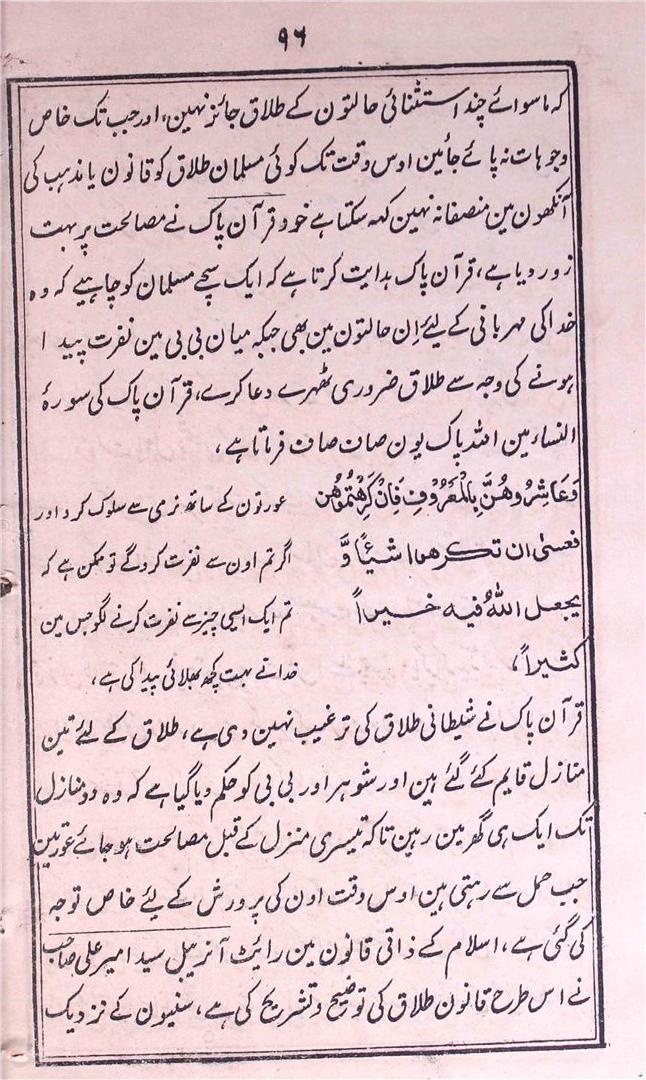 ۹۶
کہ ماسوائے چند استثنائی حالتون کے طلاق جائز نہین، اور جب تک خاص
وجوہات نہ پائے جائین اوس وقت تک کوئی مسلمان طلاق کو قانون یا مذہب کی
آنکھون مین منصفانہ نہین کہہ سکتا ہے خود قرآن پاک نے مصالحت پر بہت
زور دیا ہے، قرآن پاک ہدایت کرتا ہے کہ ایک سچے مسلمان کو چاہیے کہ وہ
خدا کی مہربانی کے لیٔے اِن حالتون مین بھی جبکہ میان بی بی مین نفرت پیدا
ہونے کی وجہ سے طلاق ضروری ٹھہرے دعا کرے، قرآن پاک کی سورۂ
النساء مین اللہ پاک یون صاف صاف فرماتا ہے،
وَعَاشِرُوهُنَّ بِالْمَعْرُوْفِ فَاِنْ كَرِهْتُمُوْهُن
فعسٰی ان تکرهوا شیئًا وَّ
یجعل اللهُ فیه خیراً
کثیراً،
عورتون کے ساتھ نرمی سے سلوک کرو اور
اگر تم اون سے نفرت کروگے تو ممکن ہے کہ
تم ایک ایسی چیز سے نفرت کرنے لگو جس مین
خدا نے بہت کچھ بھلائی پیدا کی ہے،
قرآن پاک نے شیطانی طلاق کی ترغیب نہین دی ہے، طلاق کے لیٔے تین
منازل قایم کیٔے گیٔے ہین اور شوہر اور بی بی کو حکم دیا گیا ہے کہ وہ دو منازل
تک ایک ہی گھر مین رہین تاکہ تیسری منزل کے قبل مصالحت ہو جائے عورتین
جب حمل سے رہتی ہین اوس وقت اون کی پرورش کے لیٔے خاص توجہ
کی گئی ہے، اسلام کے ذاتی قانون مین رایٹ آنریبل سید امیر علی صاحب
نے اس طرح قانون طلاق کی توضیح و تشریح کی ہے، سنیون کے نزدیک